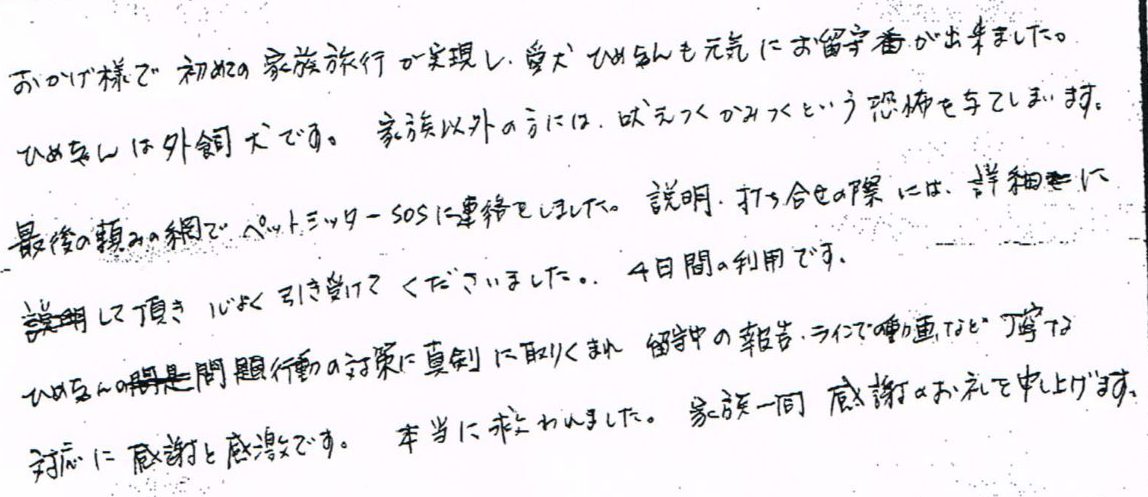 おかげ様で 初めての 家族旅行が実現し、愛犬 ひめちゃんも元気にお留守番が出来ました。
ひめちゃんは外飼犬です。 家族以外の方には、吠えつくかみつくという恐怖を与えてしまいます。
最後の頼みの網で ペットシッターSOSに連絡をしました。 説明、打ち合せの際には、詳細に
説明して頂き 心よく引き受けてくださいました。 4日間の利用です。
ひめちゃんの問題行動の対策に真剣に取りくまれ 留守中の報告・ラインでの動画など丁寧な
対応に感謝と感激です。 本当に救われました。 家族一同 感謝のお礼を申し上げます。